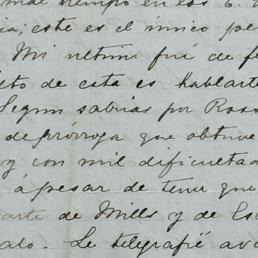 mal tiempo en los E.
ia; este es el único
Mi última fué de
de esta es hablarte
Segun sabrias por Ross
de prórroga que obtuve
y con mil dificultad
á pesar de tener que
arte de Mills y de Es
alo. Le telegrafié